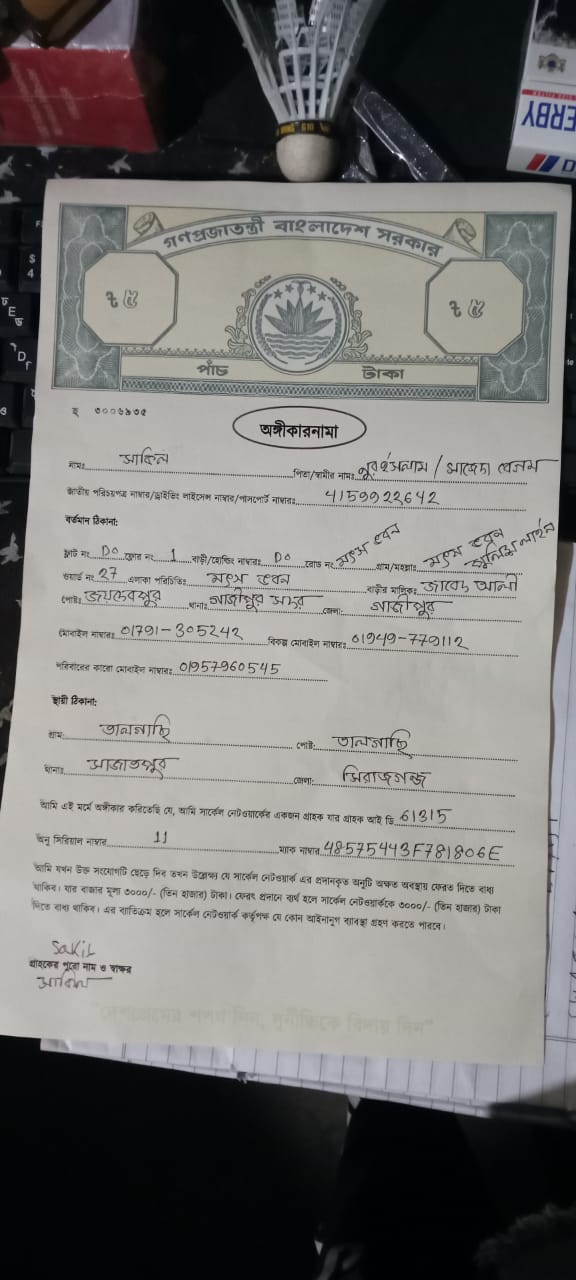 ERBY
D
গণপ্রজাতন্ত্রী বাংলাদেশ সরকার
৳ ৫ ৳ ৫
পাঁচ টাকা
অঙ্গীকারনামা
নামঃ সাকিল পিতা/স্বামীর নামঃ নুরইসলাম / সাজেদা বেগম
জাতীয় পরিচয়পত্র নাম্বার/ড্রাইভিং লাইসেন্স নাম্বার/পাসপোর্ট নাম্বারঃ 4159922642
বর্তমান ঠিকানা:
ফ্লাট নং DO ফ্লোর নং 1 বাড়ী/হোল্ডিং নাম্বারঃ DO রোড নং মৎস ভবন গ্রাম/মহল্লাঃ মৎস ভবন পুলিশ লাইন
ওয়ার্ড নং 27 এলাকা পরিচিতিঃ মৎস ভবন বাড়ীর মালিকঃ জাবেদ আলী
পোষ্টঃ জয়দেবপুর থানাঃ গাজীপুর সদর জেলা: গাজীপুর
মোবাইল নাম্বারঃ 01791-305242 বিকল্প মোবাইল নাম্বারঃ 01949-779112
পরিবারের কারো মোবাইল নাম্বারঃ 01957960545
স্থায়ী ঠিকানা:
গ্রাম: তালগাছি পোষ্ট: তালগাছি
থানাঃ সাজাতপুর জেলা: সিরাজগঞ্জ
আমি এই মর্মে অঙ্গীকার করিতেছি যে, আমি সার্কেল নেটওয়ার্কের একজন গ্রাহক যার গ্রাহক আই ডি 61315
অনু সিরিয়াল নাম্বার 11 ম্যাক নাম্বার 48575443F781806E
আমি যখন উক্ত সংযোগটি ছেড়ে দিব তখন উল্লেখ্য যে সার্কেল নেটওয়ার্ক এর প্রদানকৃত অনুটি অক্ষত অবস্থায় ফেরত দিতে বাধ্য
থাকিব। যার বাজার মূল্য ৩০০০/- (তিন হাজার) টাকা। ফেরৎ প্রদানে ব্যর্থ হলে সার্কেল নেটওয়ার্ককে ৩০০০/- (তিন হাজার) টাকা
দিতে বাধ্য থাকিব। এর ব্যতিক্রম হলে সার্কেল নেটওয়ার্ক কর্তৃপক্ষ যে কোন আইনানুগ ব্যবস্থা গ্রহণ করতে পারবে।
SaKiL
গ্রাহকের পুরো নাম ও স্বাক্ষর
সাকিল
"দেশপ্রেমের শপথ নিন, দুর্নীতিকে বিদায় দিন"